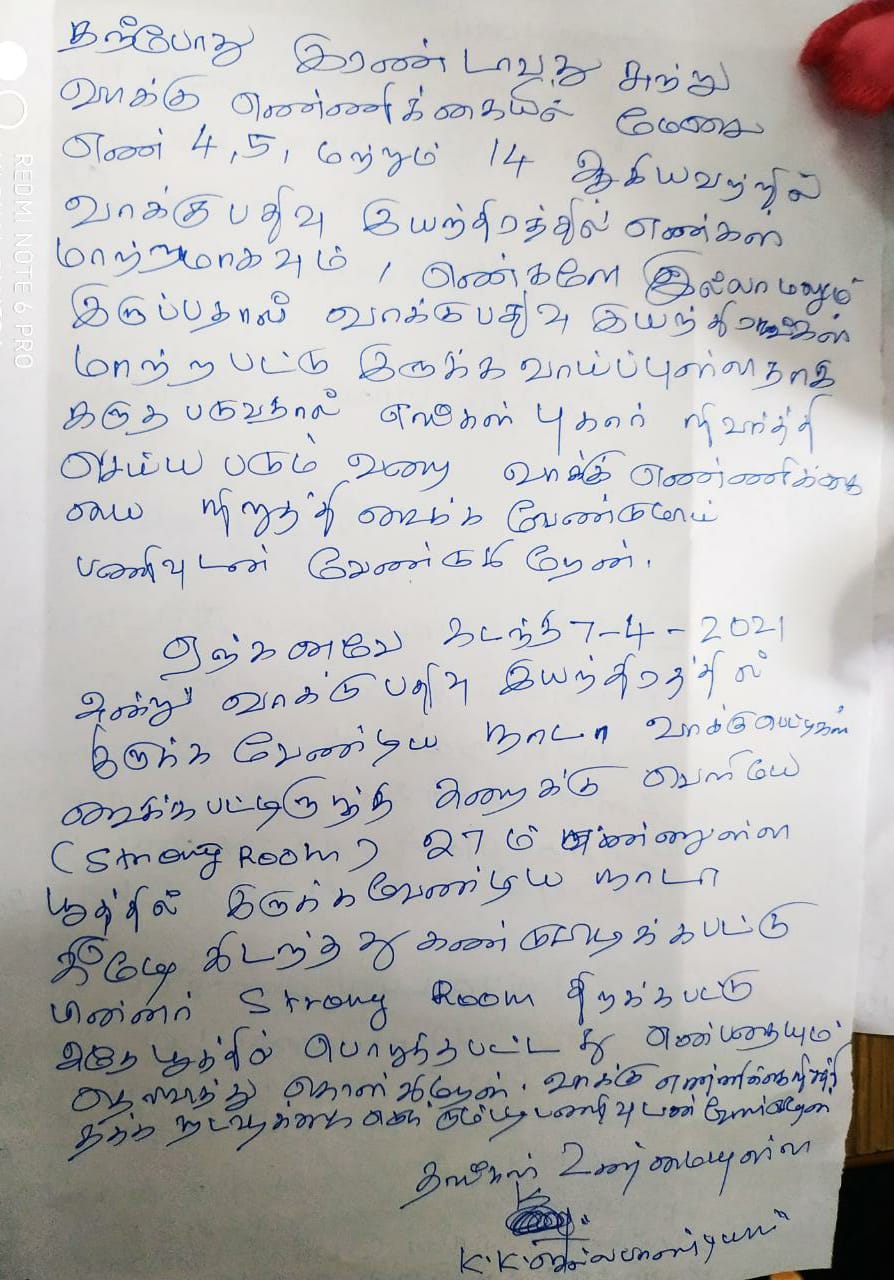 தற்போது இரண்டாவது சுற்று
வாக்கு எண்ணிக்கையில் மேசை
எண் 4,5, மற்றும் 14 ஆகியவற்றில்
வாக்குபதிவு இயந்திரத்தில் எண்கள்
மாற்றமாகவும், எண்களே இல்லாமலும்
இருப்பதால் வாக்குபதிவு இயந்திரங்கள்
மாற்றபட்டு இருக்க வாய்ப்புள்ளதாக
கருத படுவதால் எங்கள் புகார் நிவர்த்தி
செய்ய படும் வரை வாக்கு எண்ணிக்கை
யை நிறுத்தி வைக்க வேண்டுமாய்
பணிவுடன் வேண்டுகிறேன்.
ஏற்கனவே கடந்த 7-4-2021
அன்று வாக்குபதிவு இயந்திரத்தில்
இருக்க வேண்டிய நாடா வாக்குபெட்டிகள்
வைக்கபட்டிருந்த அறைக்கு வெளியே
(Strong Room) 27ம் எண்ணுள்ள
பூத்தில் இருக்கவேண்டிய நாடா
கீழே கிடந்தது கண்டுபிடிக்கபட்டு
பின்னர் Strong Room திறக்கபட்டு
அதே பூத்தில் பொறுத்தபட்டது என்பதையும்
தெரிவித்து கொள்கிறேன். வாக்கு எண்ணிக்கை நிறுத்தி
தக்க நடவடிக்கை எடுக்கும்படி பணிவுடன் வேண்டுகிறேன்
தங்கள் உண்மையுள்ள
K.K.செல்லபாண்டியன்
REDMI NOTE 6 PRO